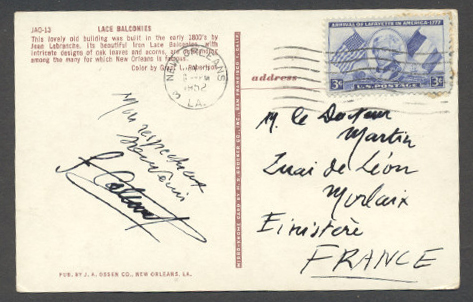 JAO-13 LACE BALCONIES
This lovely old building was built in the early 1800's by
Jean Labranche, its beautiful Iron Lace Balconies, with
intricate designs of oak leaves and acorns, are
among the many for which New Orleans is famous.
Color by
NEW ORLEANS
1952
LA.
ARRIVAL OF LAFAYETTE IN AMERICA-1777
3¢ U.S. POSTAGE 3¢
address
Mon respectueux
souvenir
M. le Docteur
Martin
Quai de Léon
Morlaix
Finistère
FRANCE
PUB. BY J. A. OSSEN CO., NEW ORLEANS, LA.